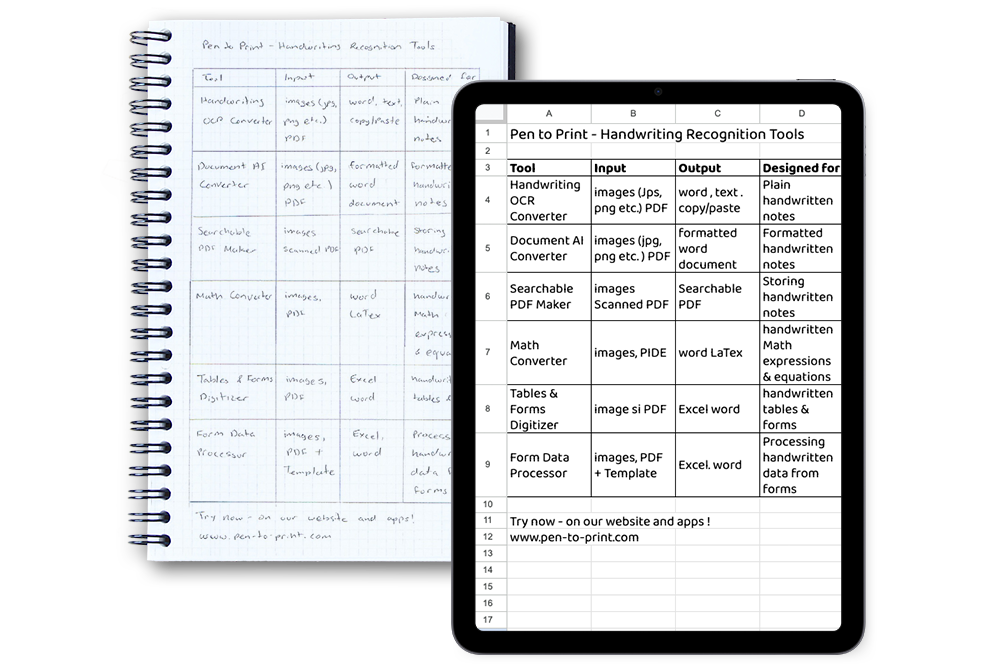 Pen to Print - Handwriting Recognition Tools
Tool Input Output Designed for
Handwriting images (jps, word, text, Plain
OCR Converter png etc.) copy/paste
PDF notes
Document AI images (jpg, formatted
Converter png etc.) word
PDF document notes
Searchable images searchable Storing
PDF Maker scanned PDF PDF
notes
Math Converter images, word
PDF LaTex Math
&
Tables & Forms images, Excel
Digitizer PDF word tables &
Form Data images, Excel,
Processor PDF + word
Template data
forms
Try now - on our website and apps!
www.pen-to-print.com
A B C D
1 Pen to Print - Handwriting Recognition Tools
2
3 Tool Input Output Designed for
4 Handwriting OCR Converter images (Jps, png etc.) PDF word , text . copy/paste Plain handwritten notes
5 Document AI Converter images (jpg, png etc.) PDF formatted word document Formatted handwritten notes
6 Searchable PDF Maker images Scanned PDF Searchable PDF Storing handwritten notes
7 Math Converter images, PIDE word LaTex handwritten Math expressions & equations
8 Tables & Forms Digitizer image si PDF Excel word handwritten tables & forms
9 Form Data Processor images, PDF + Template Excel. word Processing handwritten data from forms
10
11 Try now - on our website and apps !
12 www.pen-to-print.com
13
14
15
16
17